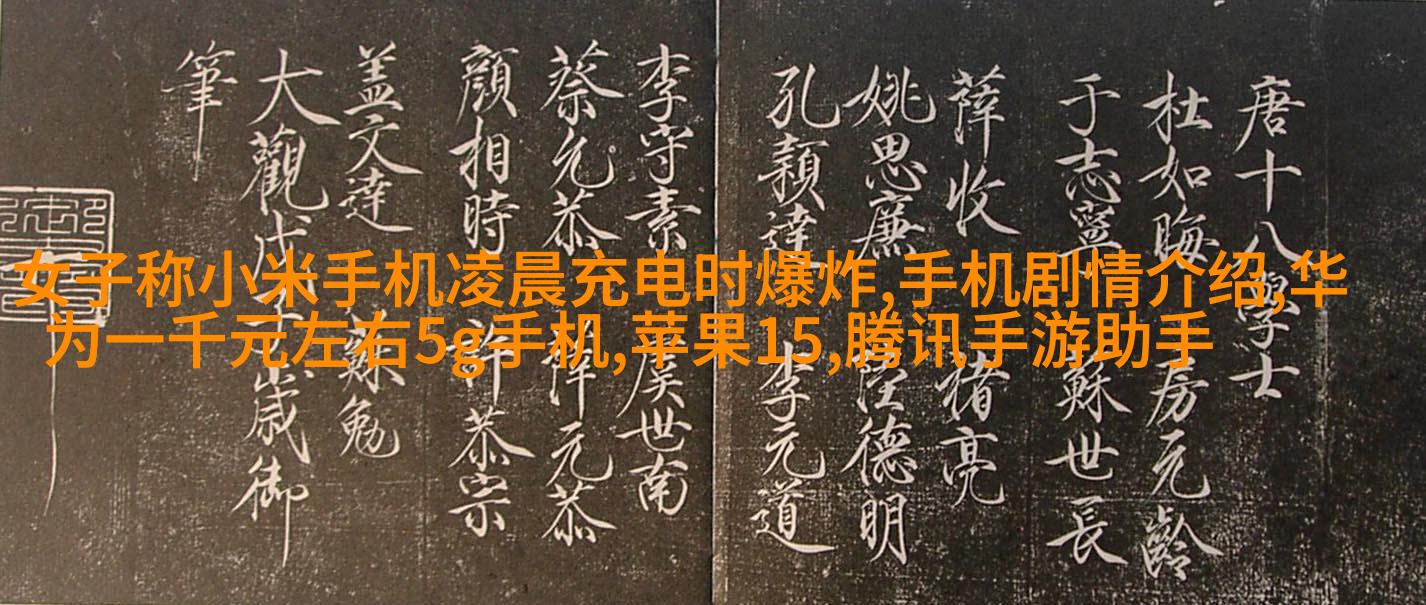 唐十八學士
杜如晦 房元齡
于志寧 蘇世長
薛收 褚亮
姚思廉 陸德明
孔穎達 李元道
李守素 虞世南
蔡允恭 薛元恭
顏相時 許恭宗
盖文達 蘇勉
大觀戊子歲御
筆
女子称小米手机凌晨充电时爆炸,手机剧情介绍,华
为一千元左右5g手机,苹果15,腾讯手游助手